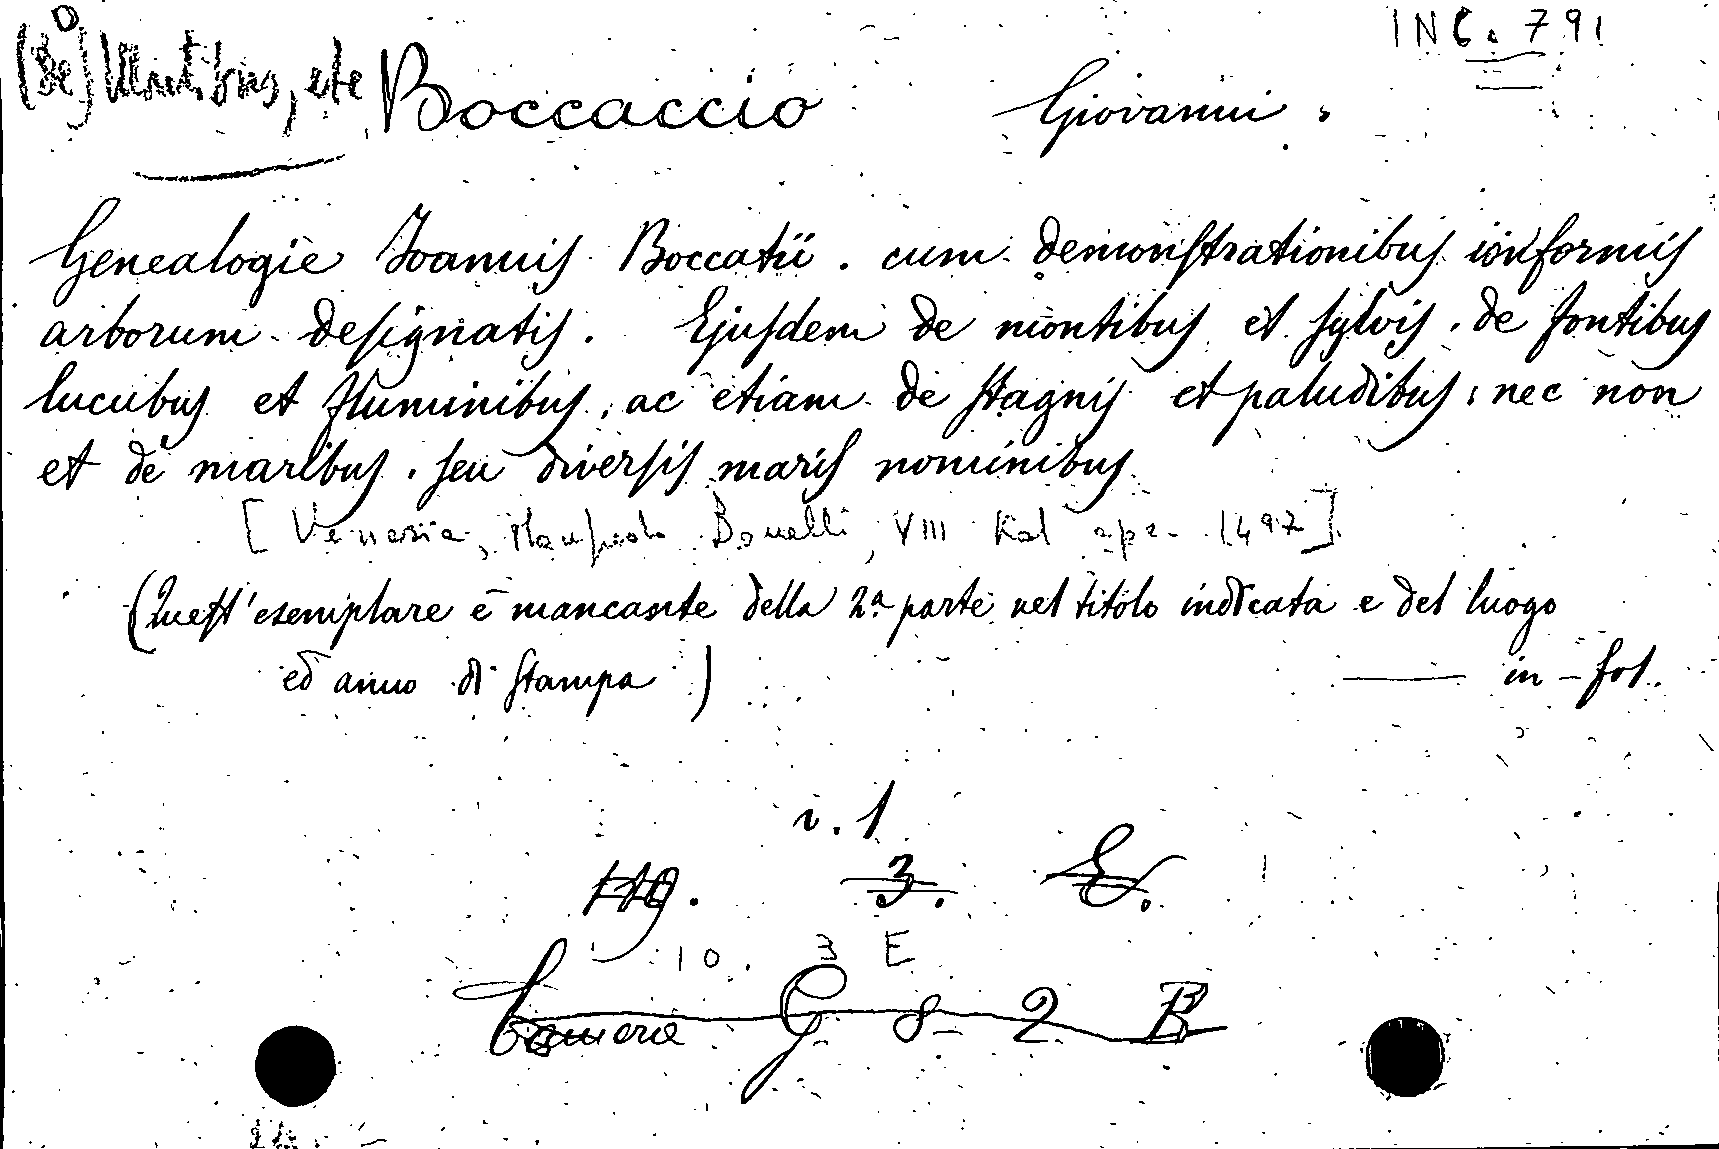 INC. 791
(De) Montibus, etc Boccaccio Giovanni.
Genealogie Joannis Boccatii. cum demonstrationibus in formis
arborum designatis. Ejusdem de montibus et sylvis. de fontibus
lacubus et fluminibus, ac etiam de stagnis et paludibus, nec non
et de maribus. seu diversis maris nominibus.
[Venezia, Manfredo Bonelli, VIII Kal apr. 1497].
(Quest'esemplare è mancante della 2ª parte nel titolo indicata e del luogo
ed anno di stampa) — in-fol.
v. 1
3. E.
10. 3 E
Camera G 8 2 B